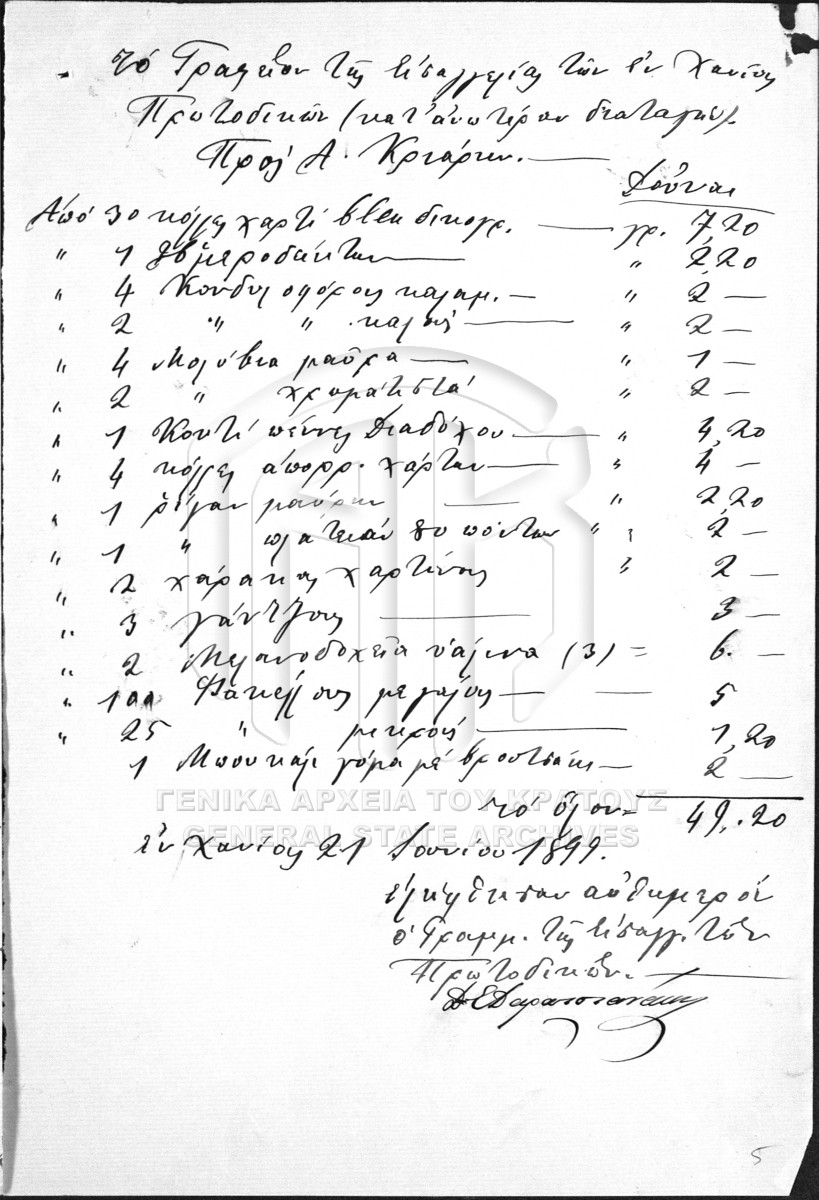 Τό Γραφεῖον τῆς Εἰσαγγελίας τῶν ἐν Χανίοις
Πρωτοδικῶν (κατ' ἀνωτέραν διαταγήν).
Πρός Α. Κριάρην.
Δοῦναι
Ἀπό 30 κόλλες χαρτί δικογρ. γρ. 7,20
" 1 " 2,20
" 4 Κονδυλοφόρους καλαμ. " 2
" 2 " " καλούς " 2
" 4 Μολύβια μαῦρα " 1
" 2 " χρωματιστά " 2
" 1 Κουτί πέννες Διαδόχου " 4,20
" 4 κόλλες ἀπορρ. χάρτην " 4
" 1 ρίγαν μαύρην " 2,20
" 1 " πόντων " 2
" 2 χάρακας χαρτίνους " 2
" 3 γάντζους 3
" 2 Μελανοδοχεῖα ὑάλινα (3) = 6.
" 100 Φακέλλους μεγάλους 5
" 25 " μικρούς 1,20
1 Μπουκάλι γόμα μέ βρουτσάκι 2
ΓΕΝΙΚΑ ΑΡΧΕΙΑ ΤΟΥ ΚΡΑΤΟΥΣ
GENERAL STATE ARCHIVES
τό ὅλον = 49,20
ἐν Χανίοις 21 Ἰουνίου 1899.
ἐλήφθησαν αὐθημερόν
ὁ Γραμμ. τῆς Εἰσαγγ. τῶν
Πρωτοδικῶν.
5